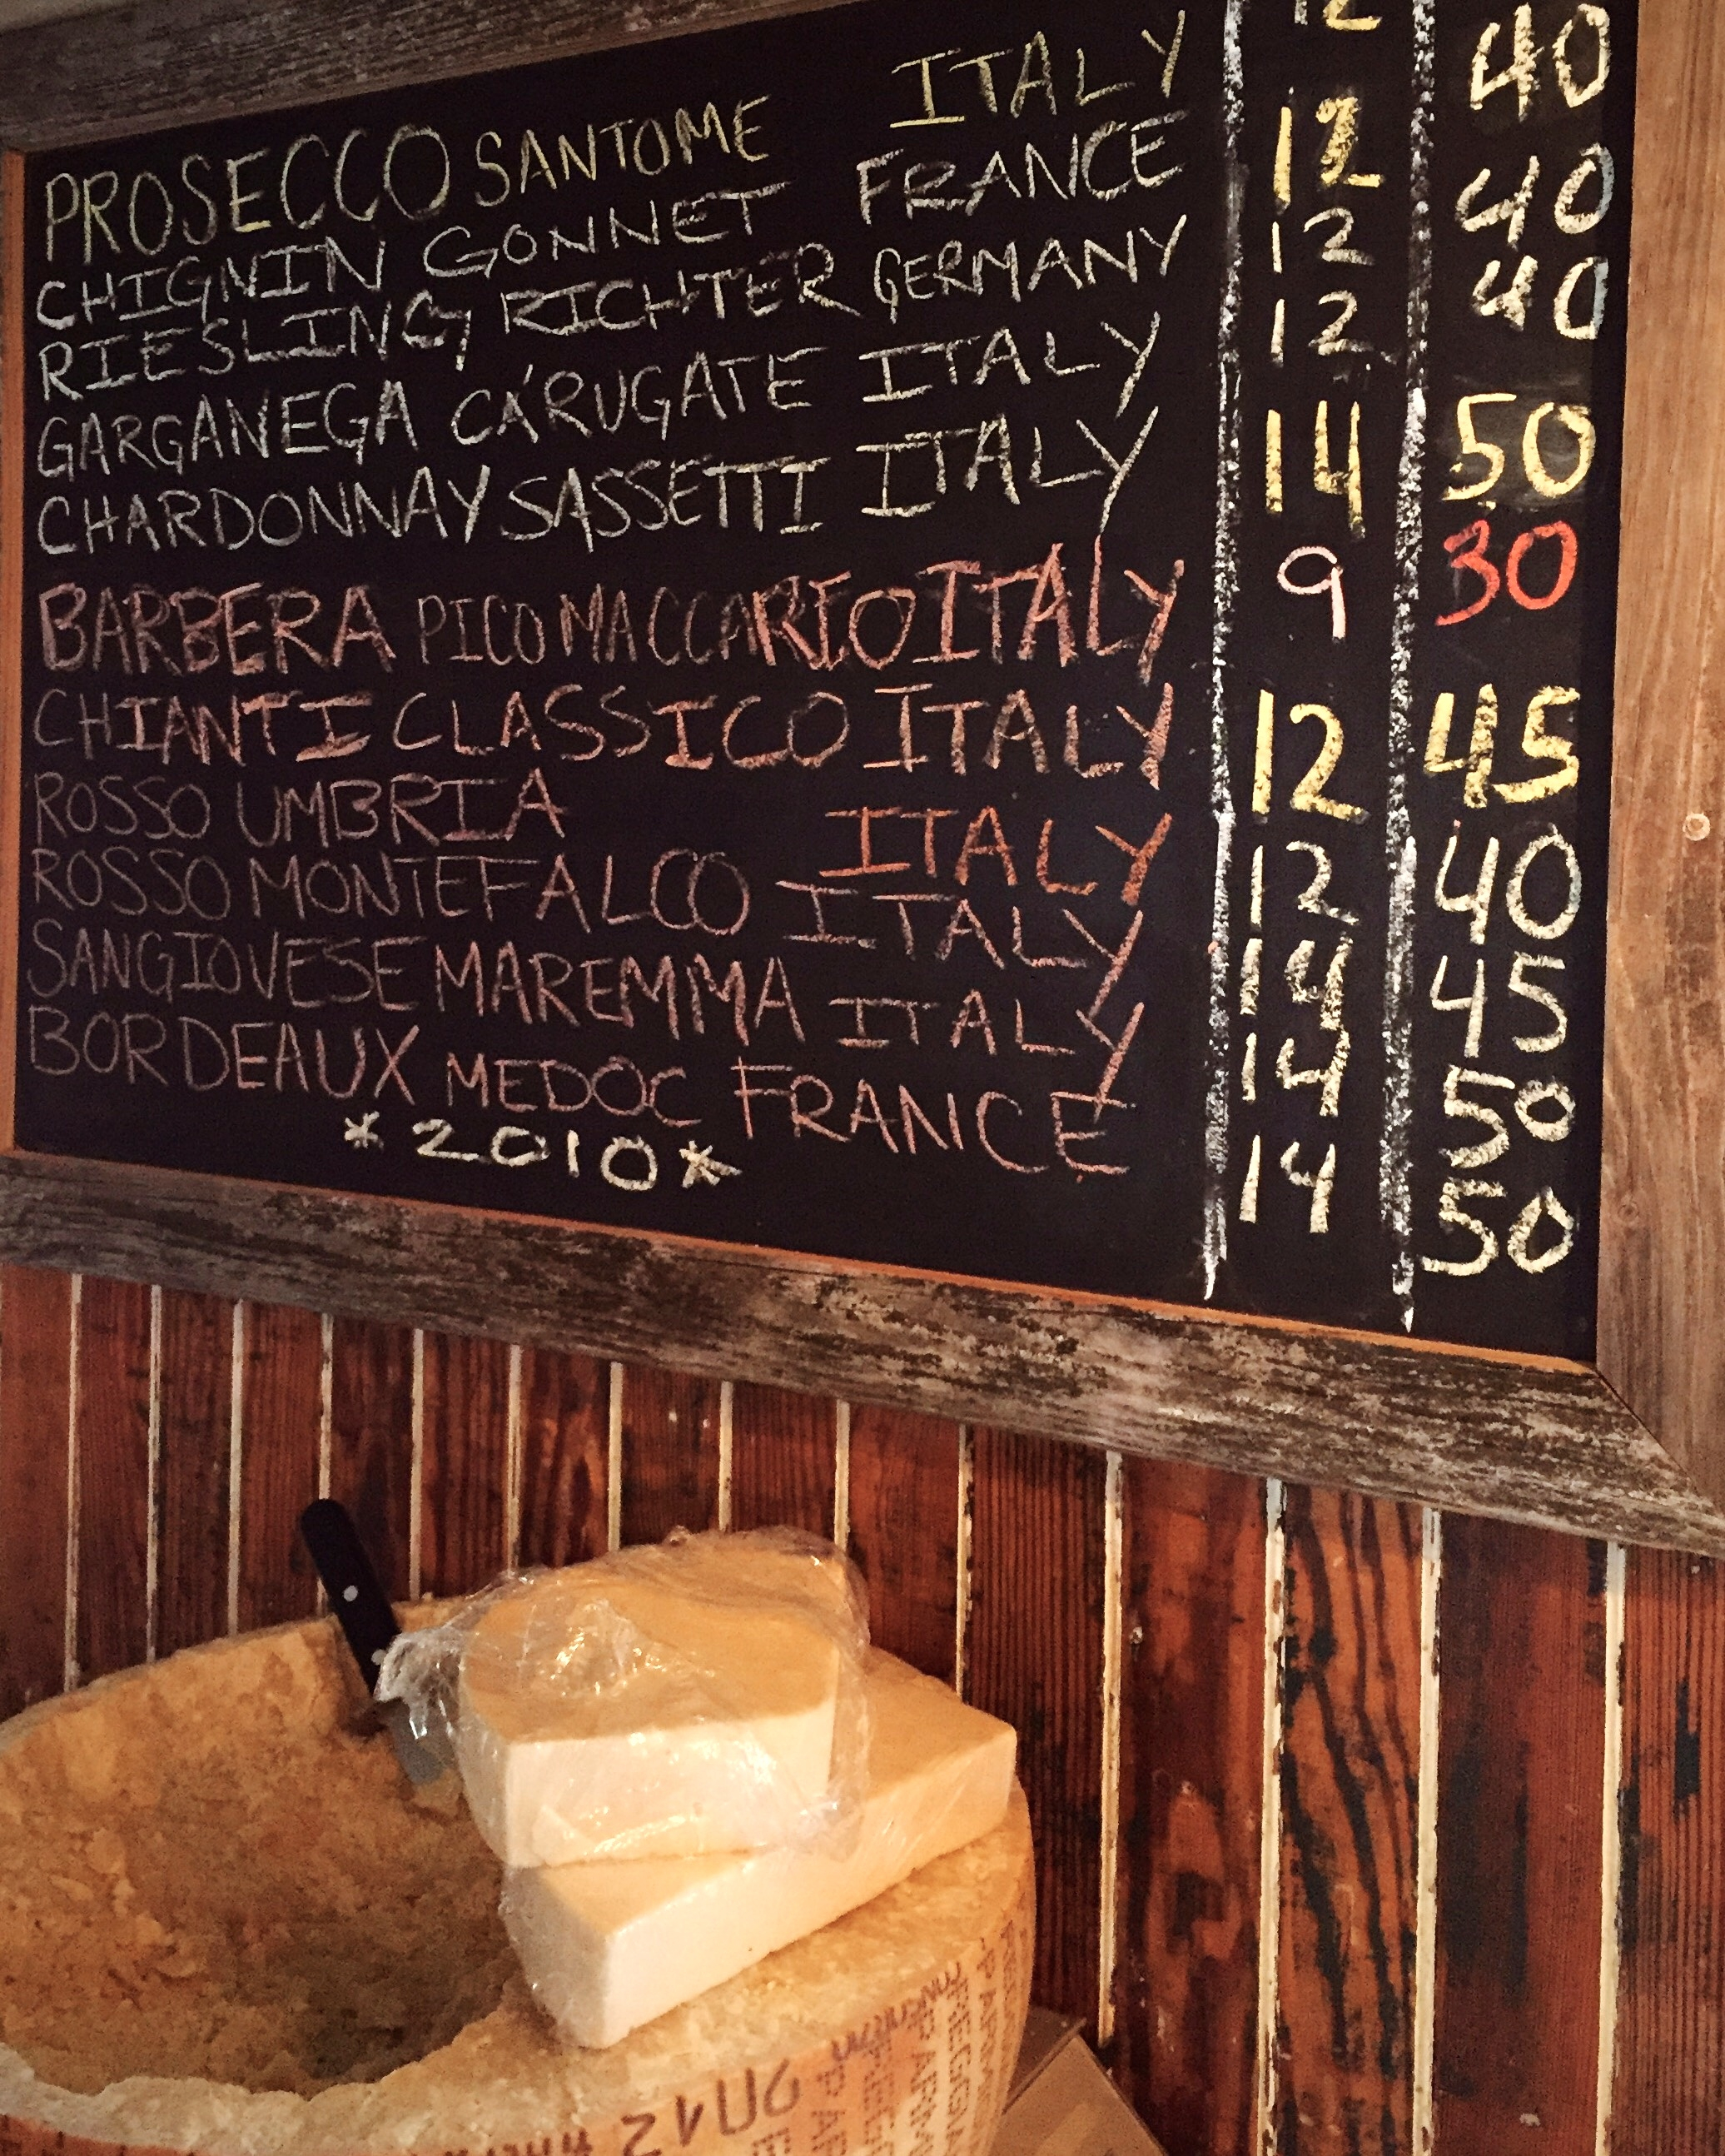 PROSECCO SANTOME ITALY 12
CHIGNIN GONNET FRANCE 12 40
RIESLING RICHTER GERMANY 12 40
GARGANEGA CA'RUGATE ITALY 12 40
CHARDONNAY SASSETTI ITALY 14 50
BARBERA PICO MACCARIO ITALY 9 30
CHIANTI CLASSICO ITALY 12 45
ROSSO UMBRIA ITALY 12 40
ROSSO MONTEFALCO ITALY 14 45
SANGIOVESE MAREMMA ITALY 14 50
BORDEAUX MEDOC FRANCE 14 50
*2010*